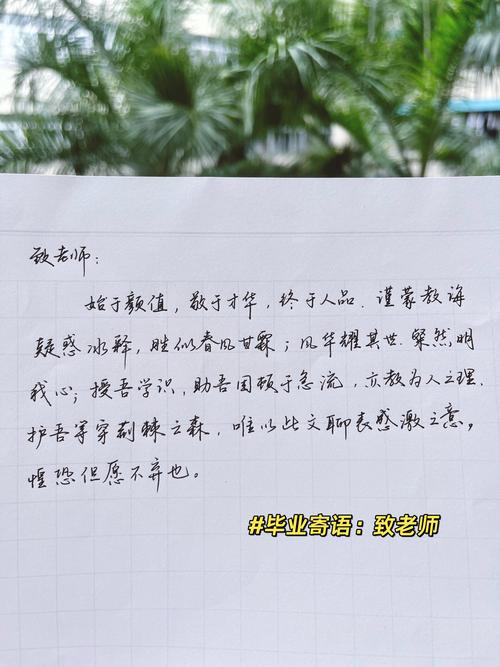 致老师：
始于颜值，敬于才华，终于人品．谨蒙教诲
疑惑冰释，胜似春风甘霖；风华耀其世．粲然明
我心；授吾学识，助吾回顾于急流，亦教为人之理．
护吾等穿荆棘之森，唯以此文聊表感激之意。
惶恐但愿不弃也。
#毕业寄语：致老师